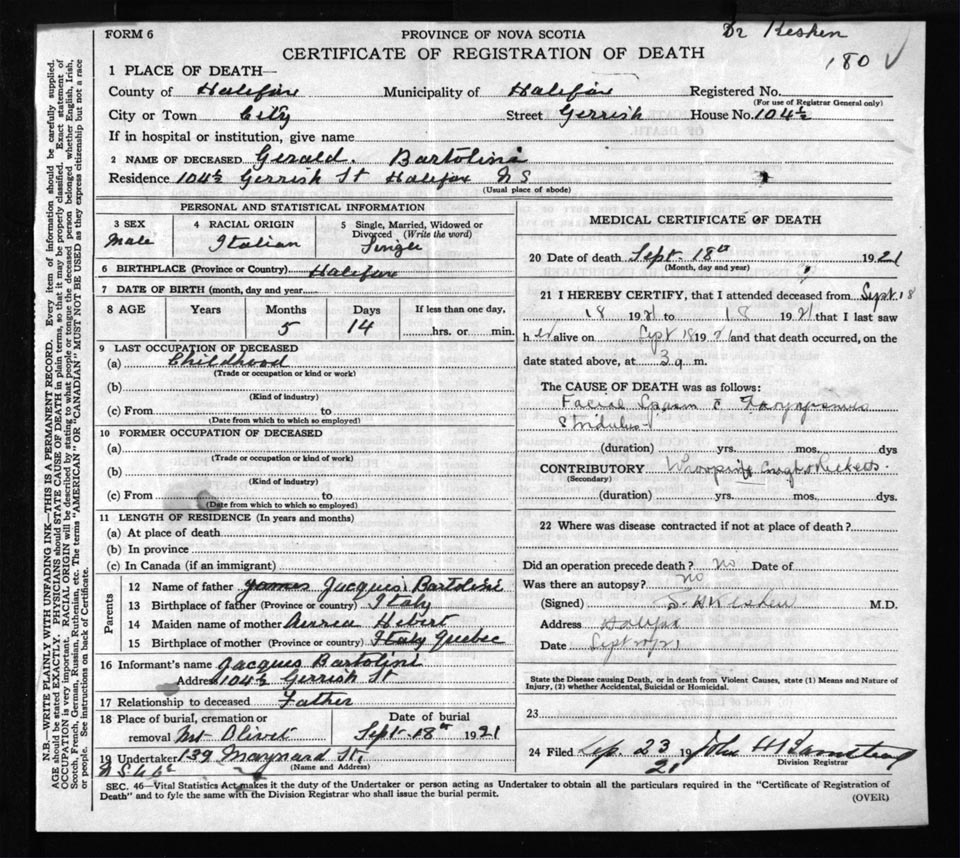 FORM 6
PROVINCE OF NOVA SCOTIA
Dr Keshen
180 ✓
CERTIFICATE OF REGISTRATION OF DEATH
1 PLACE OF DEATH—
County of Halifax Municipality of Halifax Registered No.
(For use of Registrar General only)
City or Town City Street Gerrish House No. 104½
If in hospital or institution, give name
2 NAME OF DECEASED Gerald. Bartolini
Residence 104½ Gerrish St Halifax NS
(Usual place of abode)
PERSONAL AND STATISTICAL INFORMATION
3 SEX 4 RACIAL ORIGIN 5 Single, Married, Widowed or Divorced (Write the word)
Male Italian Single
6 BIRTHPLACE (Province or Country) Halifax
7 DATE OF BIRTH (month, day and year
8 AGE Years Months Days If less than one day,
5 14 hrs. or min.
9 LAST OCCUPATION OF DECEASED
(a) Childhood
(Trade or occupation or kind or work)
(b)
(Kind of industry)
(c) From to
(Date from which to which so employed)
10 FORMER OCCUPATION OF DECEASED
(a)
(Trade or occupation or kind of work)
(b)
(Kind of industry)
(c) From to
(Date from which to which so employed)
11 LENGTH OF RESIDENCE (In years and months)
(a) At place of death
(b) In province
(c) In Canada (if an immigrant)
Parents
12 Name of father James Jacques Bartolini
13 Birthplace of father (Province or country) Italy
14 Maiden name of mother Hebert
15 Birthplace of mother (Province or country) Italy Quebec
16 Informant's name Jacques Bartolini
Address 104½ Gerrish St
17 Relationship to deceased Father
18 Place of burial, cremation or Date of burial
removal Mt Olivet Sept. 18th 1921
19 Undertaker 139 Maynard St.
(Name and Address)
MEDICAL CERTIFICATE OF DEATH
20 Date of death Sept. 18th 1921
(Month, day and year)
21 I HEREBY CERTIFY, that I attended deceased from Sept. 18
18 1921 to 18 1921 that I last saw
h alive on Sept 18 1921 and that death occurred, on the
date stated above, at 3 a. m.
The CAUSE OF DEATH was as follows:
Facial Spasm c Laryngismus
Stridulus
(duration) yrs. mos. dys
CONTRIBUTORY Whooping Cough & Rickets.
(Secondary)
(duration) yrs. mos. dys.
22 Where was disease contracted if not at place of death?
Did an operation precede death? no Date of
Was there an autopsy? no
(Signed) Keshen M.D.
Address Halifax
Date Sept
State the Disease causing Death, or in death from Violent Causes, state (1) Means and Nature of
Injury, (2) whether Accidental, Suicidal or Homicidal.
23
24 Filed Sep. 23 1921 John H
Division Registrar
SEC. 46—Vital Statistics Act makes it the duty of the Undertaker or person acting as Undertaker to obtain all the particulars required in the "Certificate of Registration of
Death" and to fyle the same with the Division Registrar who shall issue the burial permit.
(OVER)
N.B.—WRITE PLAINLY WITH UNFADING INK—THIS IS A PERMANENT RECORD. Every item of information should be carefully supplied.
AGE should be stated EXACTLY. PHYSICIANS should STATE CAUSE OF DEATH in plain terms, so that it may be properly classified. Exact statement of
OCCUPATION is very important. RACIAL ORIGIN will be described by stating to what people or tongue the deceased person belonged whether English, Irish,
Scotch, French, German, Russian, Ruthenian, etc. The terms "AMERICAN" OR "CANADIAN" MUST NOT BE USED as they express citizenship but not a race
or people. See instructions on back of Certificate.